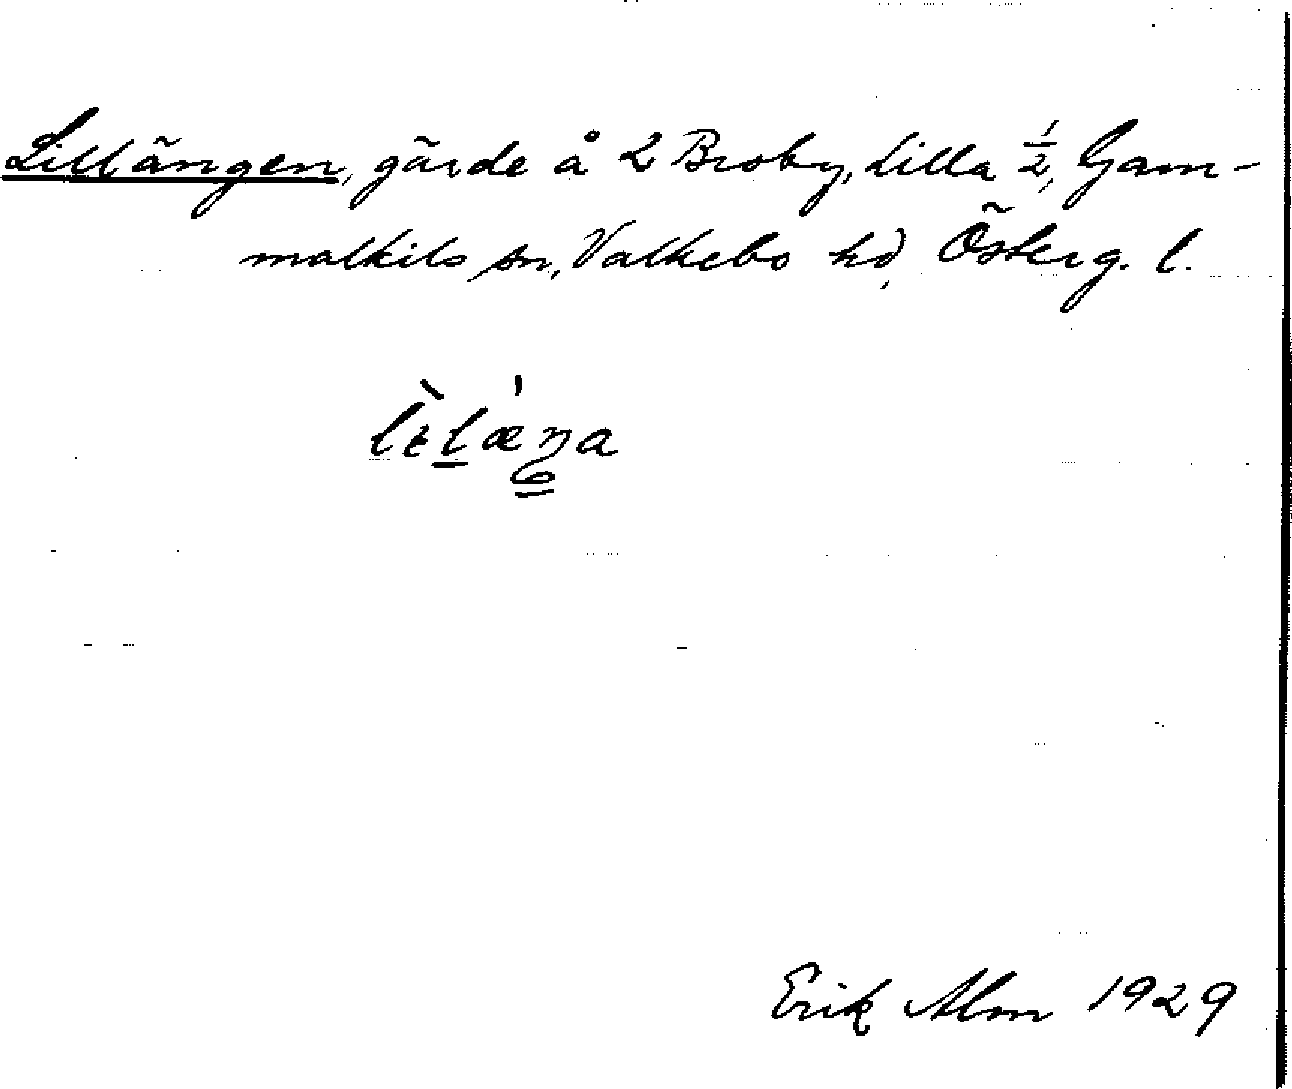 Lillängen, gärde å 2 Broby, Lilla ½, Gam-
malkils sn, Valkebo hd, Österg. l.
lìlæ̀ŋa
Erik Alm 1929